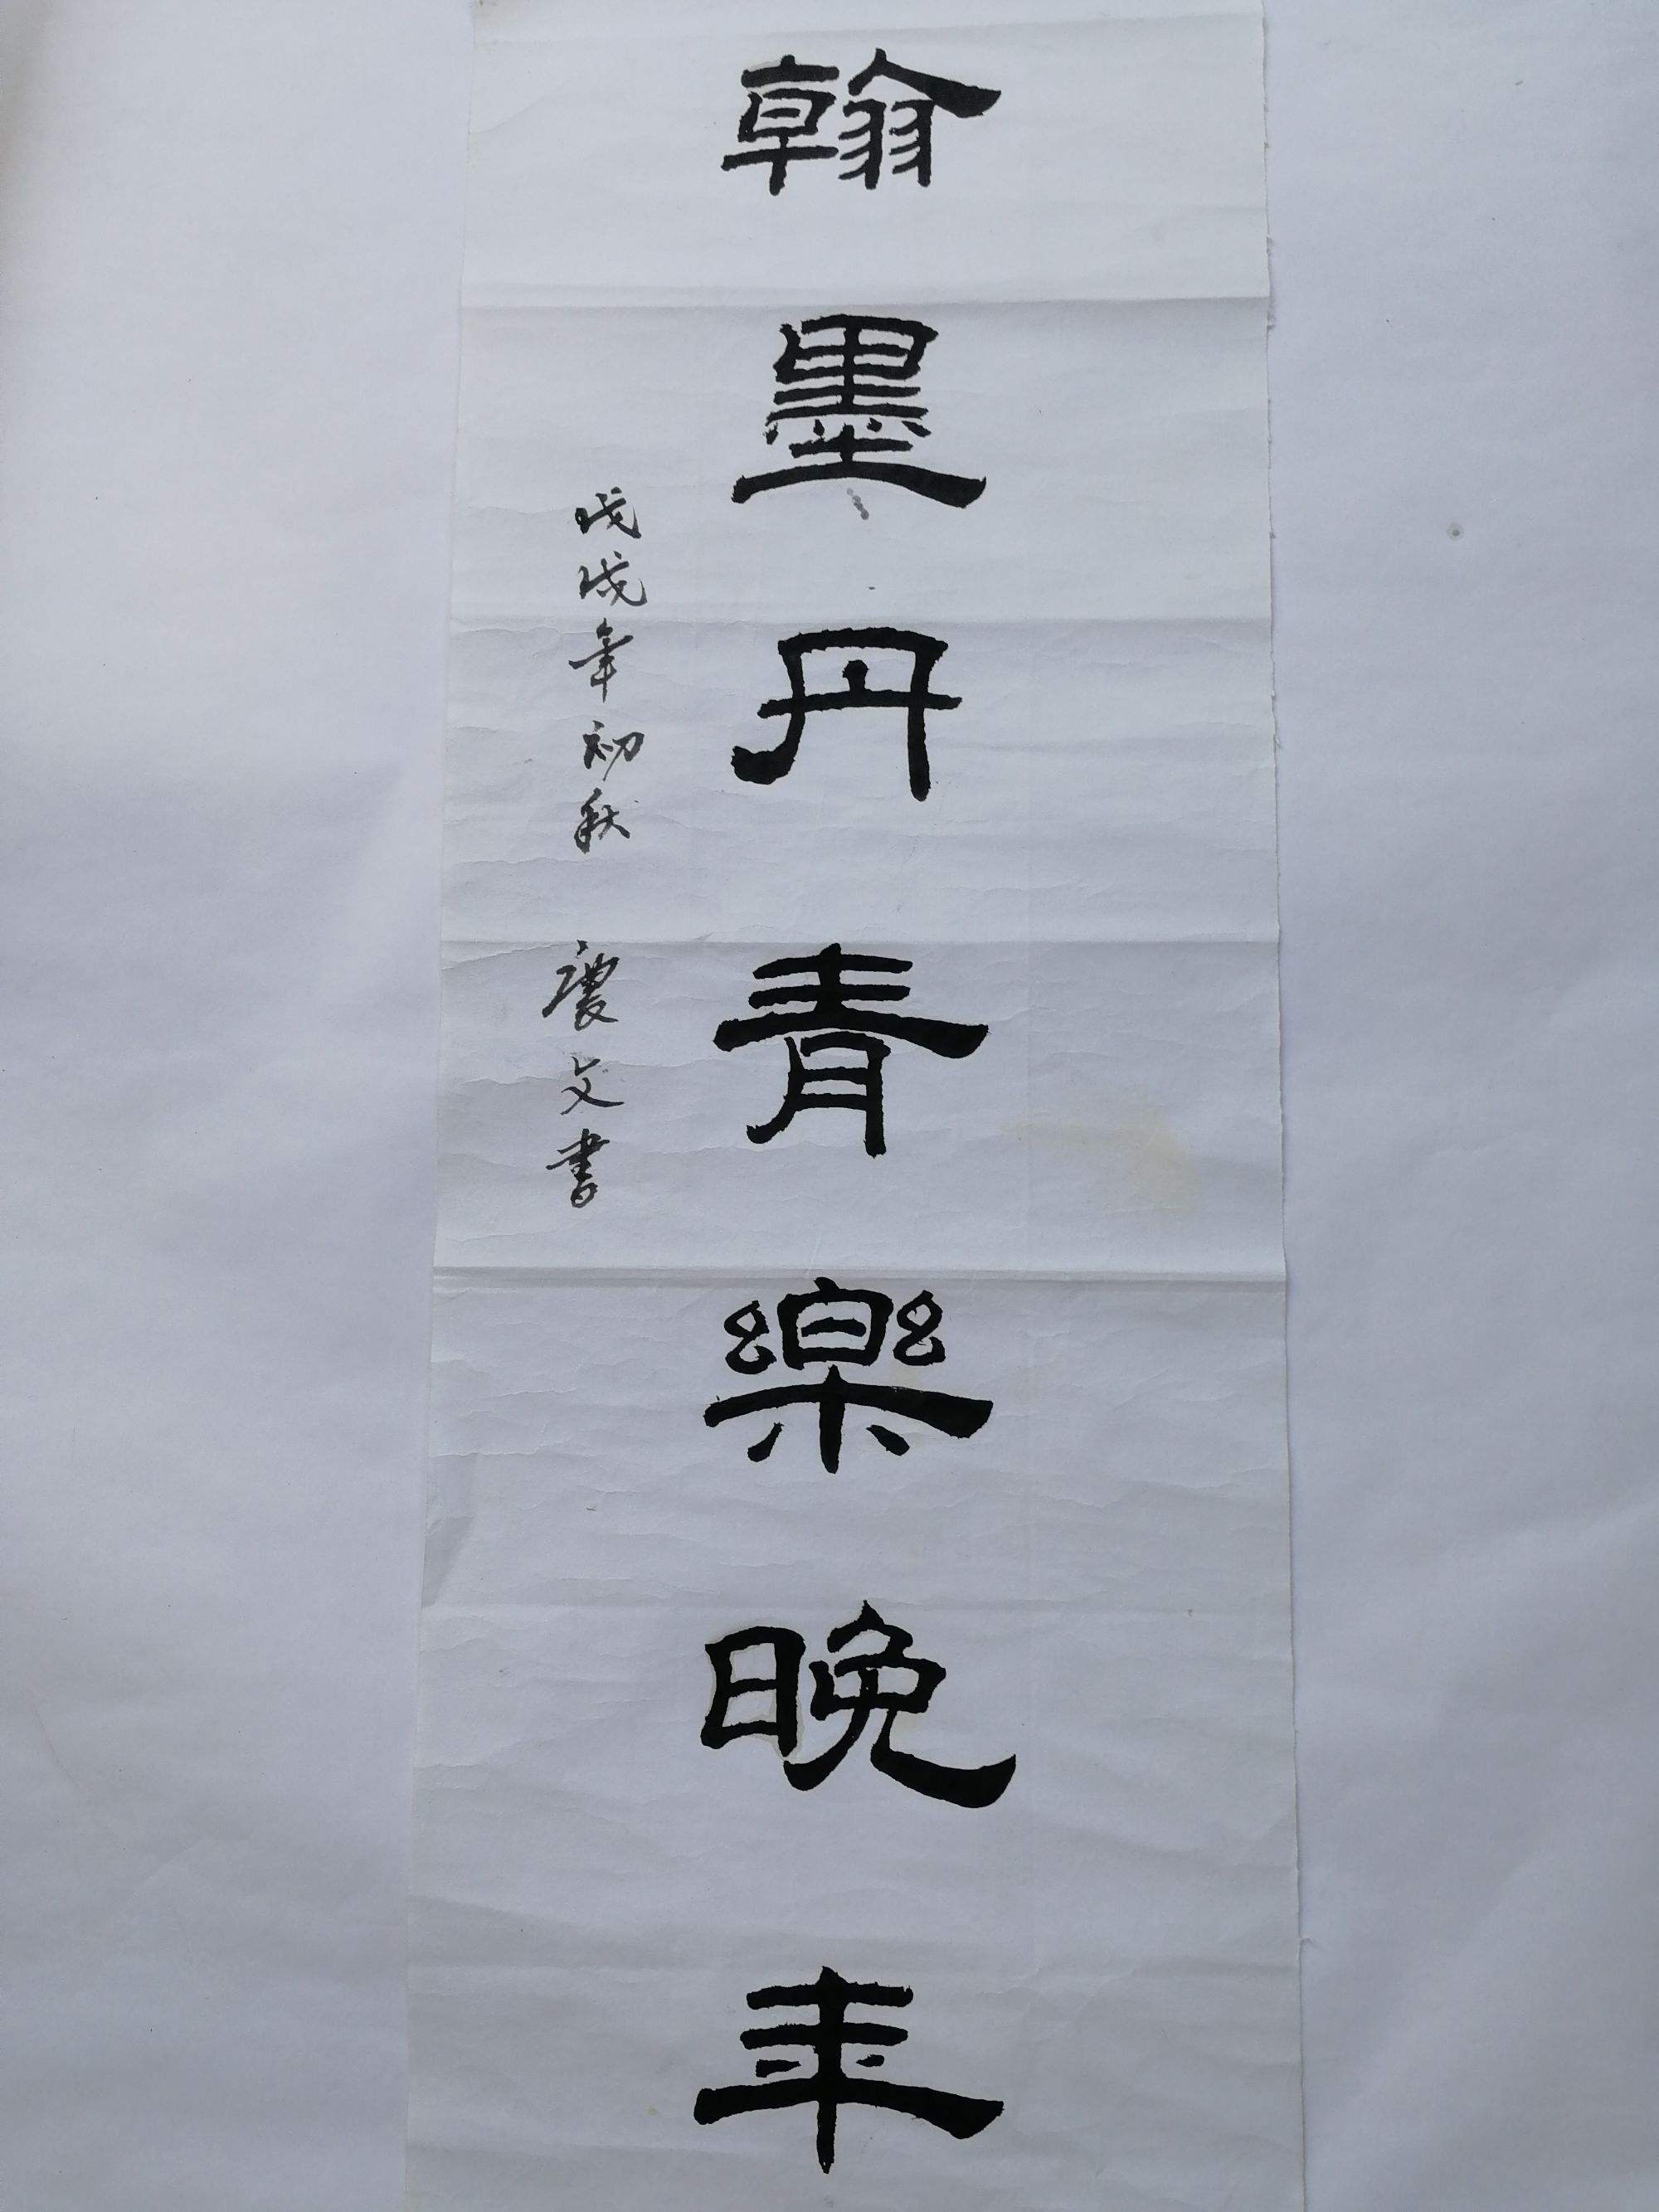 翰墨丹青樂晚年
戊戌年初秋 慶文書